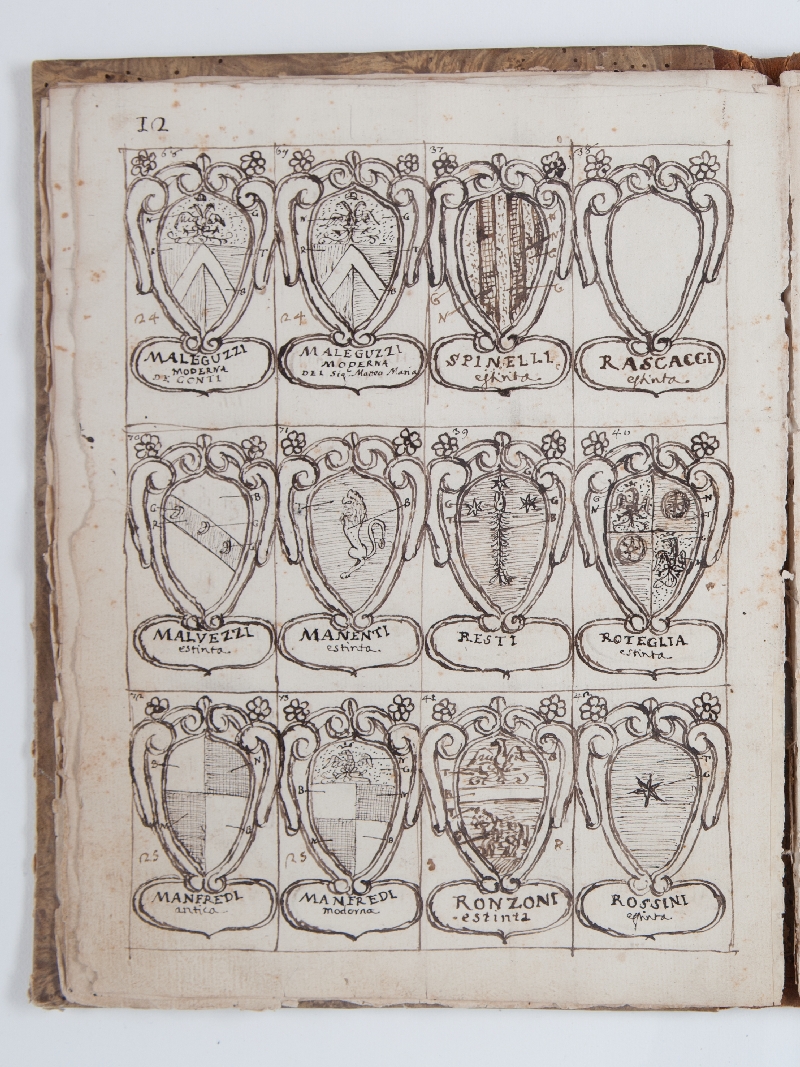 12
37
MALEGUZZI
MODERNA
DE CONTI
24
MALEGUZZI
MODERNA
DEL Sigr Marco Maria
24
SPINELLI
estinta
G
N
RASCACCI
estinta
70
MALVEZZI
estinta
G
B
71
MANENTI
estinta
B
39
RESTI
G
T
B
40
ROTEGLIA
estinta
G
N
N
T
MANFREDI
antica
N
B
25
73
MANFREDI
moderna
B
G
B
25
RONZONI
estinta
R
ROSSINI
estinta
T
G